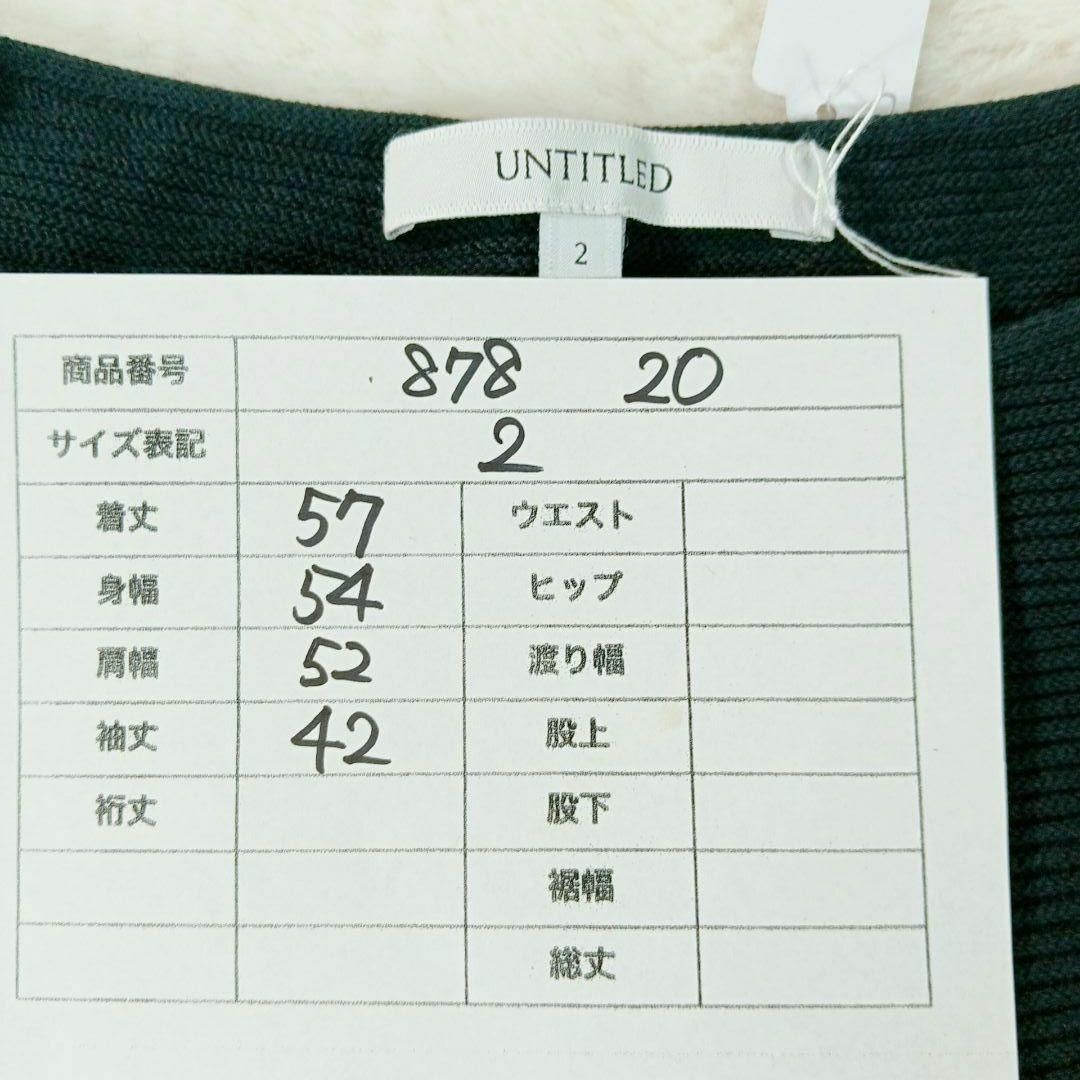 UNTITLED
2
商品番号 878 20
サイズ表記 2
着丈 57 ウエスト
身幅 54 ヒップ
肩幅 52 渡り幅
袖丈 42 股上
裄丈 股下
裾幅
総丈